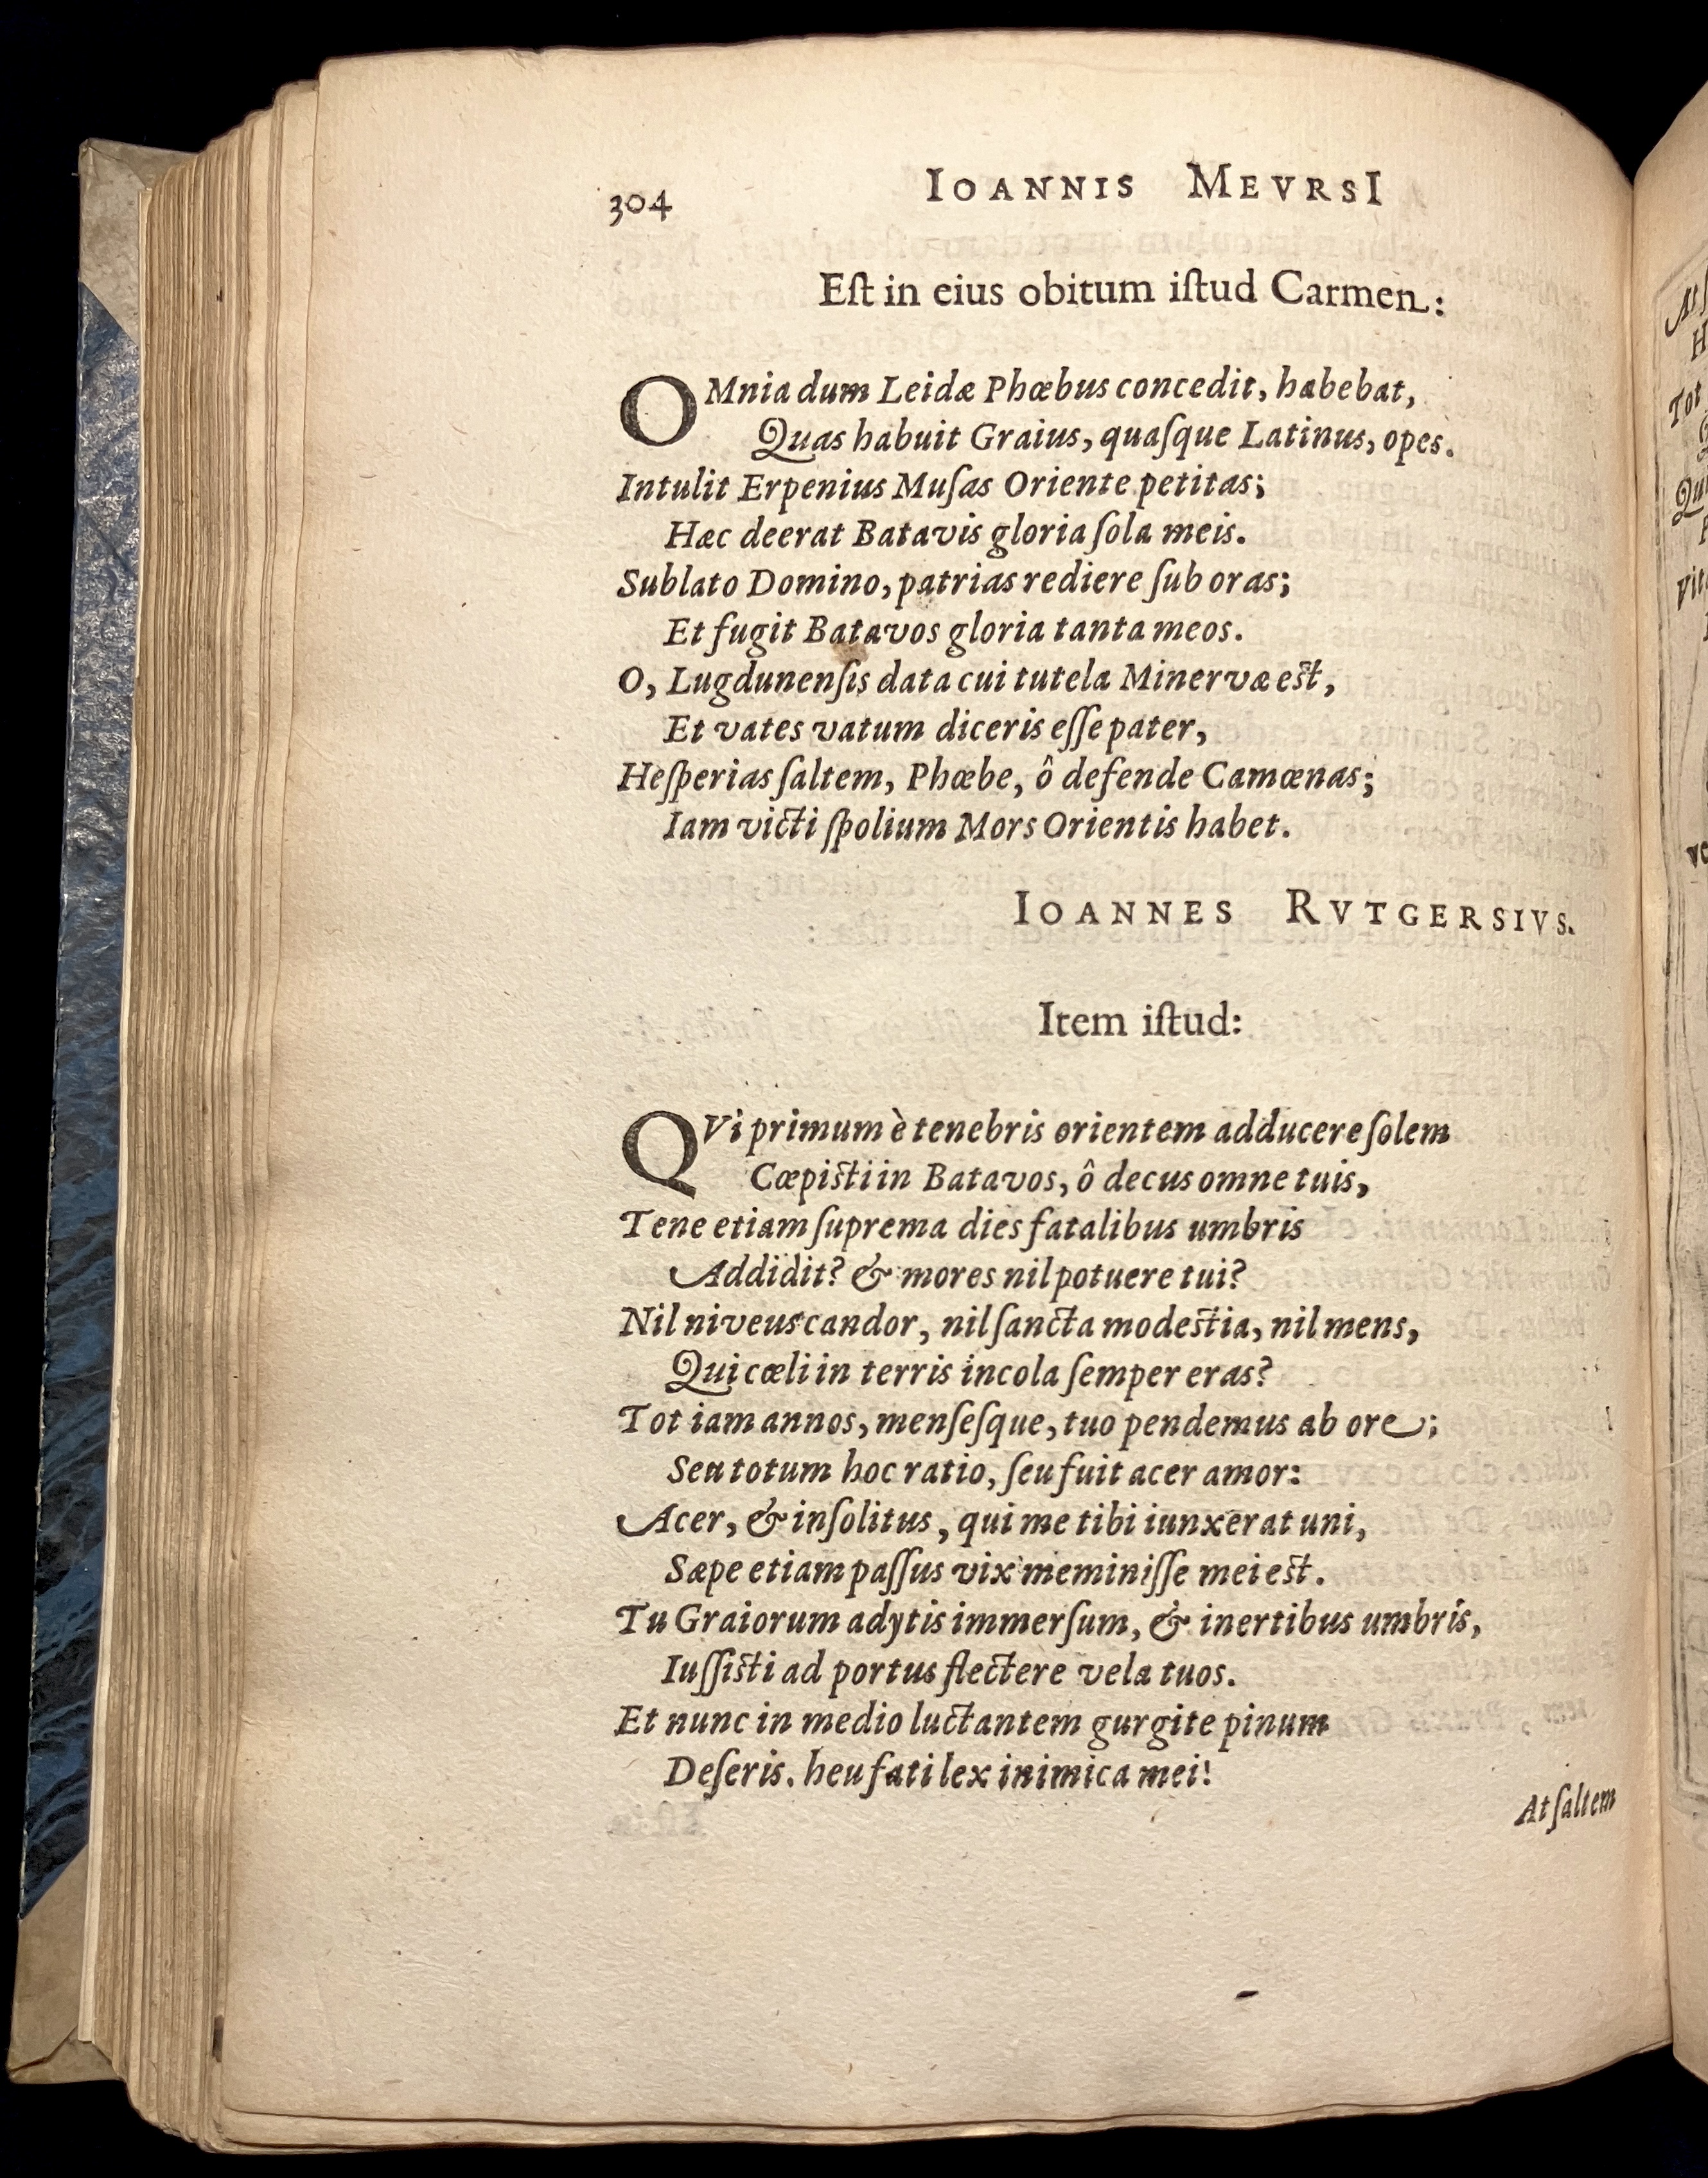 304 IOANNIS MEVRSI
Eſt in eius obitum iſtud Carmen:
OMnia dum Leidæ Phœbus concedit, habebat,
Quas habuit Graius, quaſque Latinus, opes.
Intulit Erpenius Muſas Oriente petitas;
Hæc deerat Batavis gloria ſola meis.
Sublato Domino, patrias rediere ſub oras;
Et fugit Batavos gloria tanta meos.
O, Lugdunenſis data cui tutela Minervæ eſt,
Et vates vatum diceris eſſe pater,
Heſperias ſaltem, Phœbe, ô defende Camœnas;
Iam victi ſpolium Mors Orientis habet.
IOANNES RVTGERSIVS.
Item iſtud:
QVi primum è tenebris orientem adducere ſolem
Cœpiſti in Batavos, ô decus omne tuis,
Tene etiam ſuprema dies fatalibus umbris
Addidit? & mores nil potuere tui?
Nil niveus candor, nil ſancta modeſtia, nil mens,
Qui cœli in terris incola ſemper eras?
Tot iam annos, menſeſque, tuo pendemus ab ore;
Seu totum hoc ratio, ſeu fuit acer amor:
Acer, & inſolitus, qui me tibi iunxerat uni,
Sæpe etiam paſſus vix meminiſſe mei eſt.
Tu Graiorum adytis immerſum, & inertibus umbris,
Iuſſiſti ad portus flectere vela tuos.
Et nunc in medio luctantem gurgite pinum
Deſeris. heu fati lex inimica mei!
At ſaltem
Tot